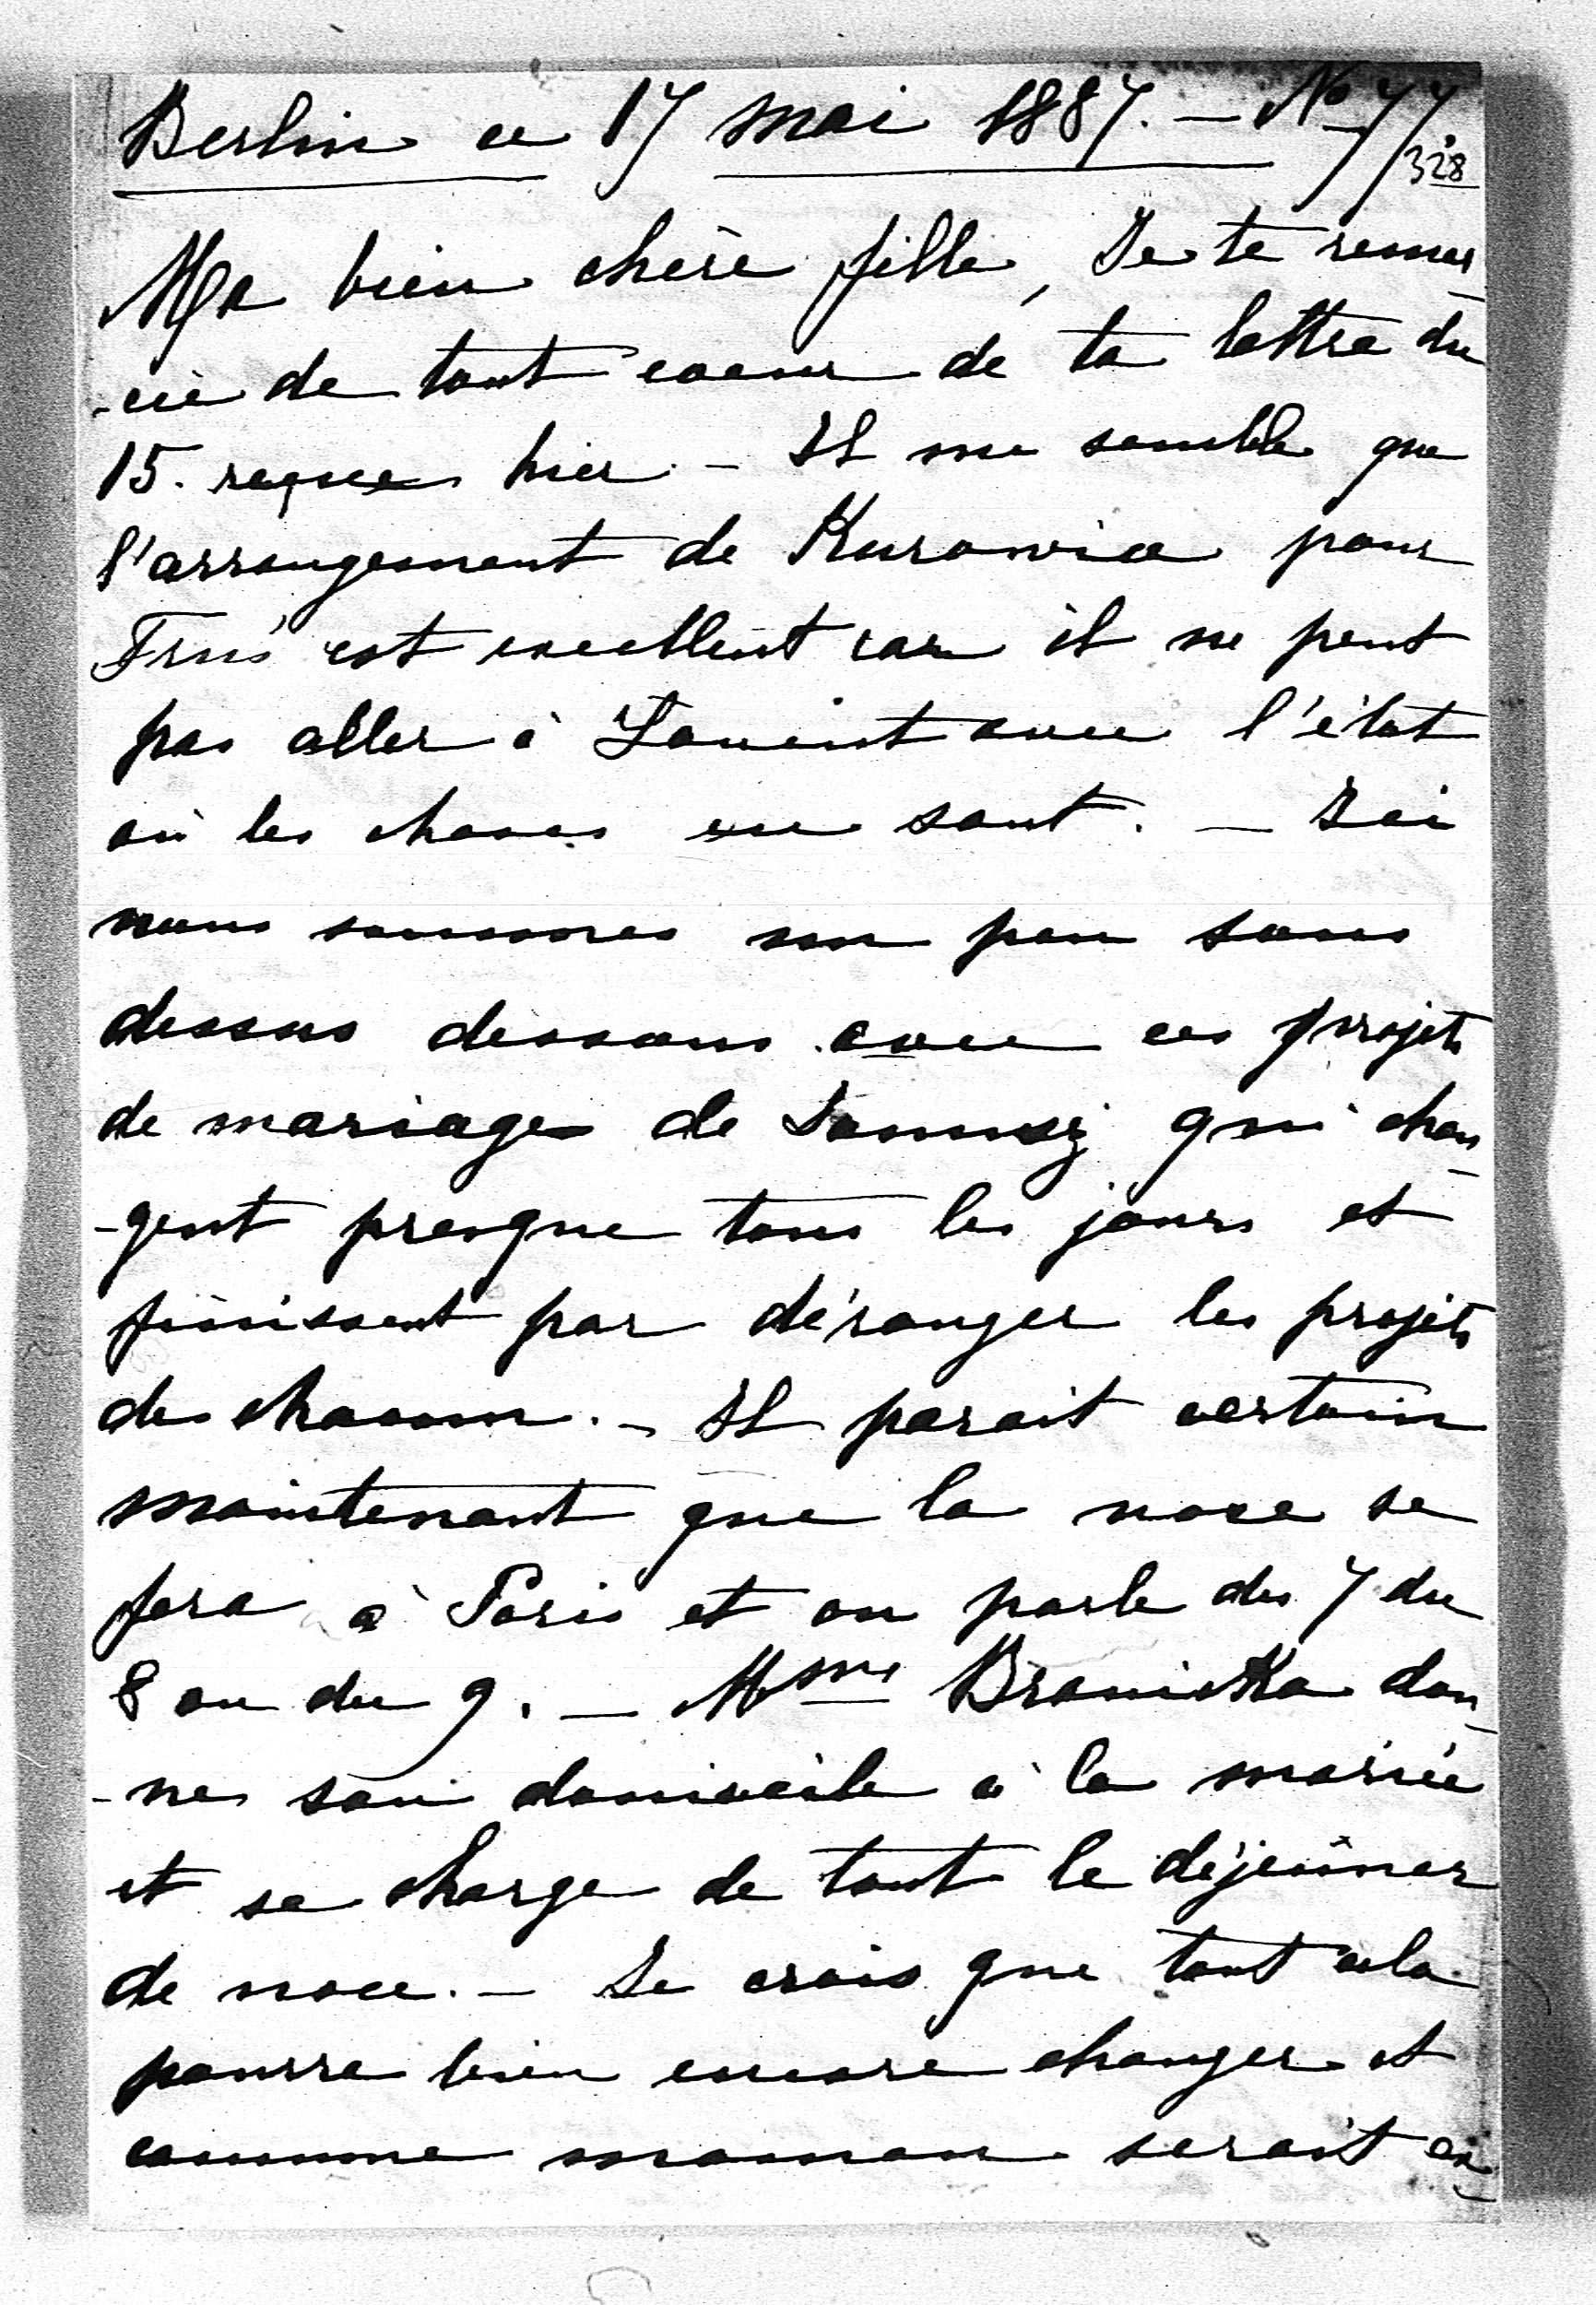 Berlin ce 17 mai 1887. — No 77/328
Ma bien chère fille, Je te remer
-cie de tout coeur de ta lettre du
15. reçue hier. — Il me semble que
l'arrangement de Kurowice pour
est excellent car il ne peut
pas aller à avec l'état
où les choses en sont. — Ici
nous sommes un peu sans
dessus dessous avec ces projets
de mariage de qui chan
-gent presque tous les jours et
finissent par déranger les projets
de chacun. — Il parait certain
maintenant que la noce se
fera à Paris et on parle du 7 du
8 ou du 9. — Mme Branicka don
-ne son domicile à la mariée
et se charge de tout le déjeûner
de noce. — Je crois que tout cela
pourra bien encore changer et
comme maman serait en